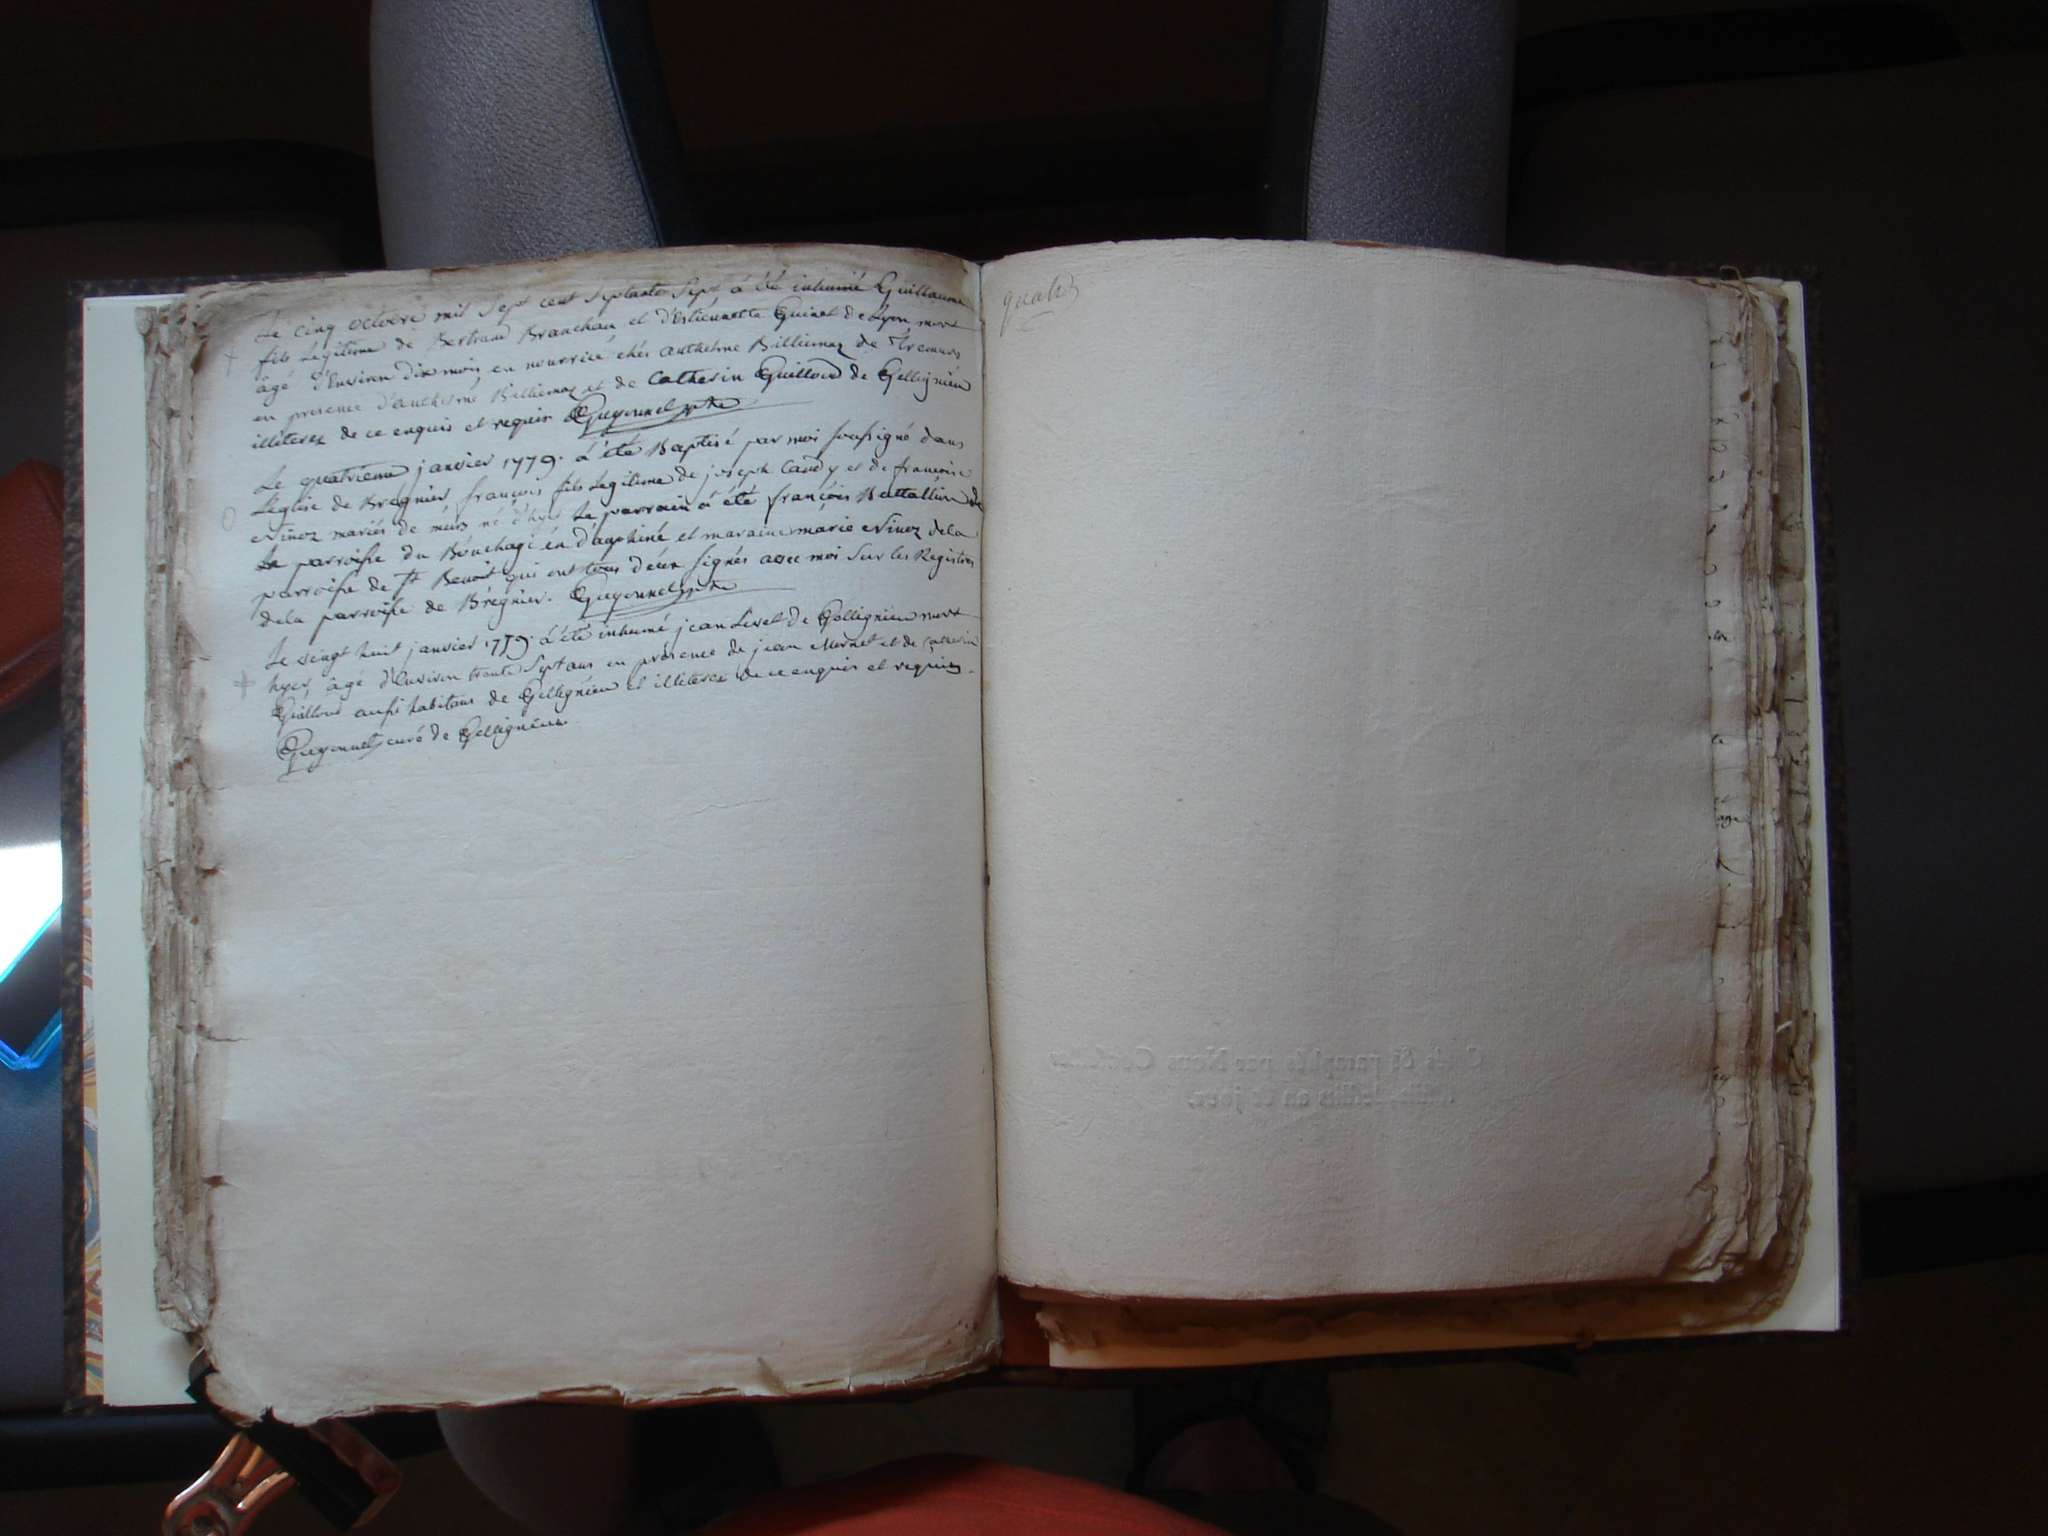 Le cinq octobre mil sept cent septante sept à été inhumé Guillaume
fils légitime de Bertrand Branchau et d'Estiennette Guinet de Lyon mort
âgé d'Environ Dix mois en nourrice chés anthelme Billiemaz de
en présence d'anthelme Billiemaz et de Catherin Guilloud de Gellignieu
illiterez de ce enquis et requis Guyonnet ptre
Le quatrieme janvier 1779. à été Baptisé par moi soussigné dans
L'église de Bregnier françois fils Legitime de joseph Caudy et de francoise
Ninoz mariés de né d'hyer Le parrain à été françois Battallion de
La parroisse du Bouchagé en dauphiné et maraine marie Ninoz dela
parroisse de St Benoit qui ont tous deux signés avec moi sur les Registres
dela parroisse de Brégnier. Guyonnet ptre
Le vingt huit janvier 1779. à été inhumé jean de Gellignieu mort
hyer, âgé d'Environ trente sept ans en présence de jean Mornet et de Catherin
Guilloud aussi habitans de Gellignieu et illiterez de ce enquis et requis.
Guyonnet curé de Gellignieu
quatre